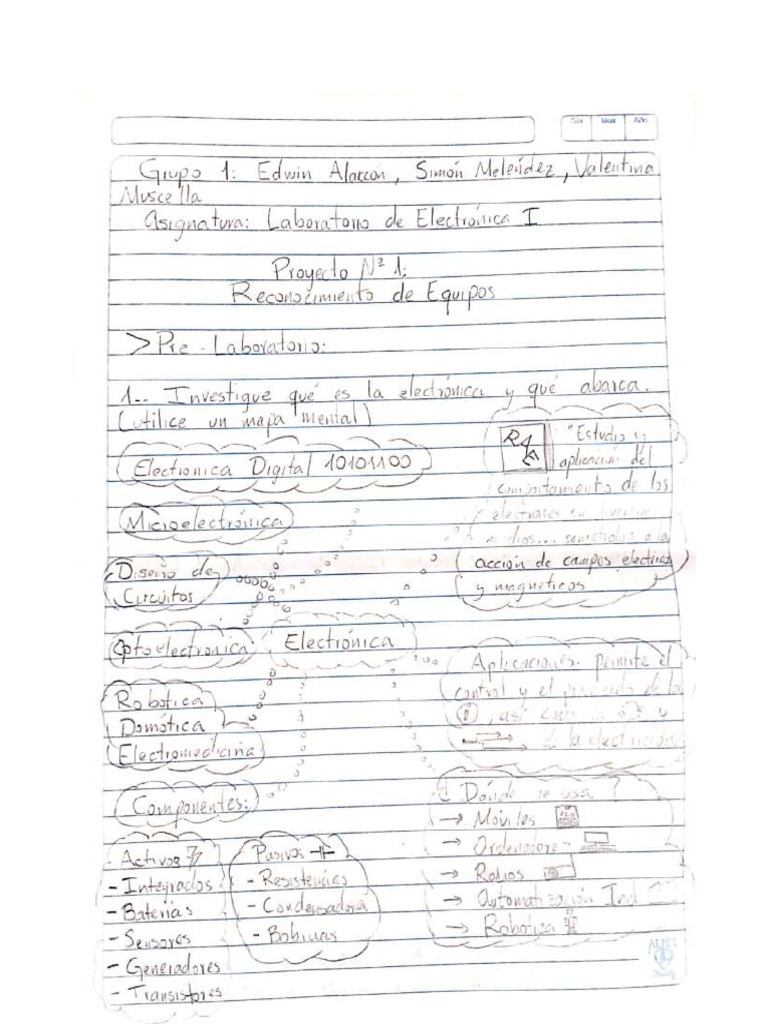 Día Mes Año
Grupo 1: Edwin Alarcón, Simón Meléndez, Valentina
Muscella
Asignatura: Laboratorio de Electrónica I
Proyecto Nº 1:
Reconocimiento de Equipos
>Pre-Laboratorio:
1.- Investigue qué es la electrónica y qué abarca.
(utilice un mapa mental)
Electronica Digital 10101100
Microelectrónica
Diseño de
Circuitos
Optoelectronica
Robótica
Domótica
Electromedicina
Electrónica
RAE
"Estudio y
aplicación del
comportamiento de los
electrones en diversos
medios... sometidos a la
acción de campos electricos
y magneticos
Aplicaciones: permite el
control y el de la
, así como la y
de la electricidad
¿Dónde se usa?
→ Móviles
→ Ordenadores
→ Radios
→ Automatización Ind
→ Robótica
Componentes:
- Activos
- Integrados
- Baterías
- Sensores
- Generadores
- Transistores
Pasivos
- Resistencias
- Condensadores
- Bobinas
ALPES